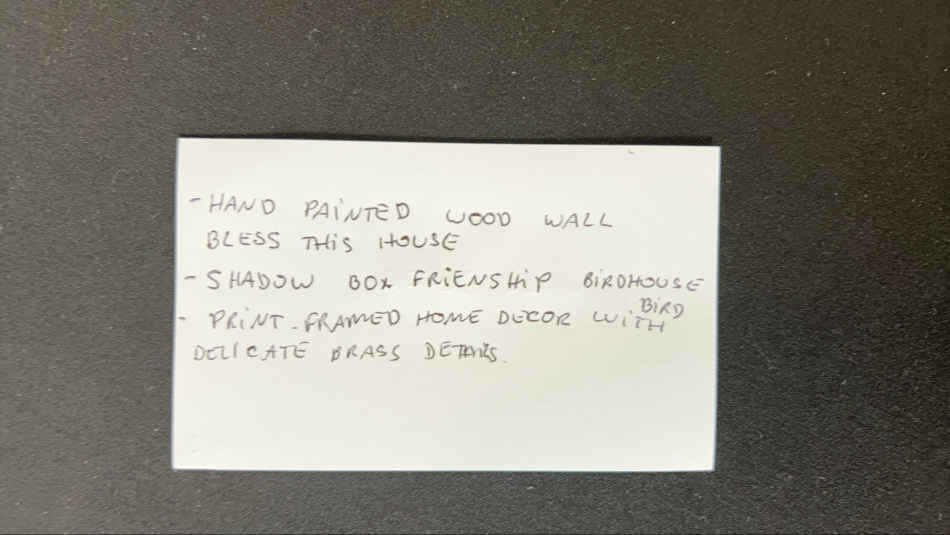 - HAND PAINTED WOOD WALL
BLESS THIS HOUSE
- SHADOW BOX FRIENSHIP BIRDHOUSE
BIRD
- PRINT-FRAMED HOME DECOR WITH
DELICATE BRASS DETAILS.